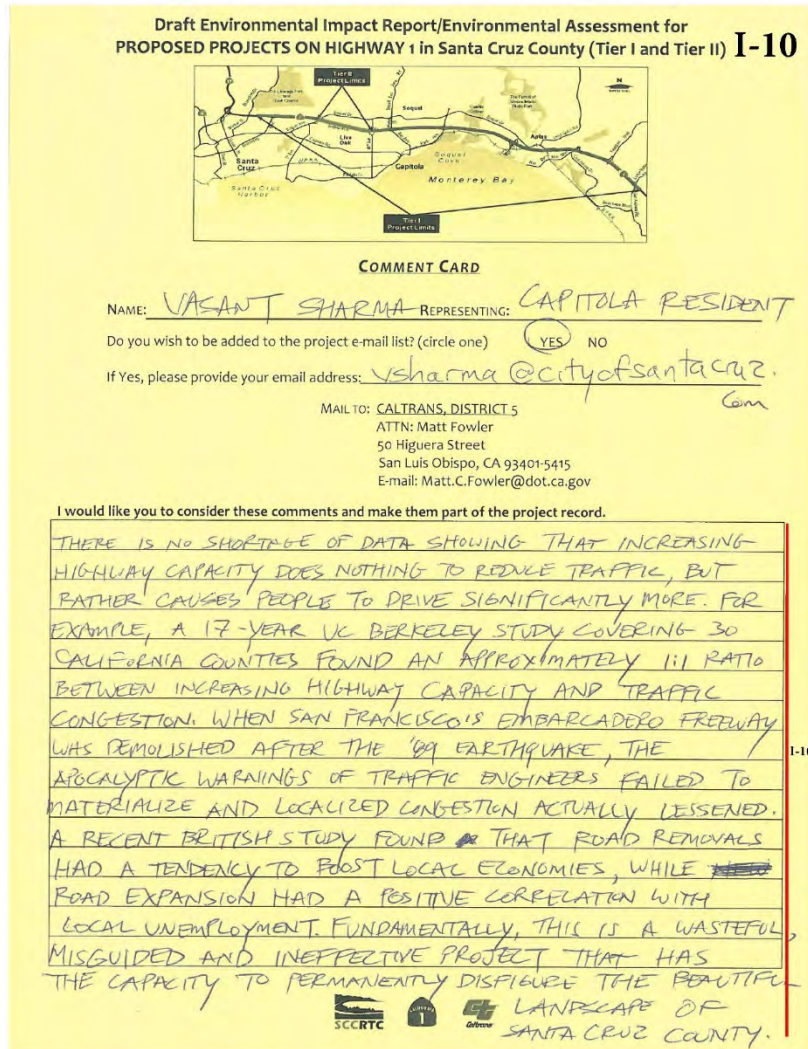 Draft Environmental Impact Report/Environmental Assessment for
PROPOSED PROJECTS ON HIGHWAY 1 in Santa Cruz County (Tier I and Tier II) I-10
Tier II
Project Limits
N
Soquel
Aptos
Live
Oak
Santa
Cruz
Capitola
Soquel
Cove
Monterey Bay
Santa Cruz
Harbor
Tier I
Project Limits
COMMENT CARD
NAME: VASANT SHARMA REPRESENTING: CAPITOLA RESIDENT
Do you wish to be added to the project e-mail list? (circle one) YES NO
If Yes, please provide your email address: vsharma@cityofsantacruz.
com
MAIL TO: CALTRANS, DISTRICT 5
ATTN: Matt Fowler
50 Higuera Street
San Luis Obispo, CA 93401-5415
E-mail: Matt.C.Fowler@dot.ca.gov
I would like you to consider these comments and make them part of the project record.
THERE IS NO SHORTAGE OF DATA SHOWING THAT INCREASING
HIGHWAY CAPACITY DOES NOTHING TO REDUCE TRAFFIC, BUT
RATHER CAUSES PEOPLE TO DRIVE SIGNIFICANTLY MORE. FOR
EXAMPLE, A 17-YEAR UC BERKELEY STUDY COVERING 30
CALIFORNIA COUNTIES FOUND AN APPROXIMATELY 1:1 RATIO
BETWEEN INCREASING HIGHWAY CAPACITY AND TRAFFIC
CONGESTION. WHEN SAN FRANCISCO'S EMBARCADERO FREEWAY
WAS DEMOLISHED AFTER THE '89 EARTHQUAKE, THE
APOCALYPTIC WARNINGS OF TRAFFIC ENGINEERS FAILED TO
MATERIALIZE AND LOCALIZED CONGESTION ACTUALLY LESSENED.
A RECENT BRITISH STUDY FOUND THAT ROAD REMOVALS
HAD A TENDENCY TO BOOST LOCAL ECONOMIES, WHILE
ROAD EXPANSION HAD A POSITIVE CORRELATION WITH
LOCAL UNEMPLOYMENT. FUNDAMENTALLY, THIS IS A WASTEFUL,
MISGUIDED AND INEFFECTIVE PROJECT THAT HAS
THE CAPACITY TO PERMANENTLY DISFIGURE THE BEAUTIFUL
LANDSCAPE OF
SANTA CRUZ COUNTY.
SCCRTC
1
Caltrans